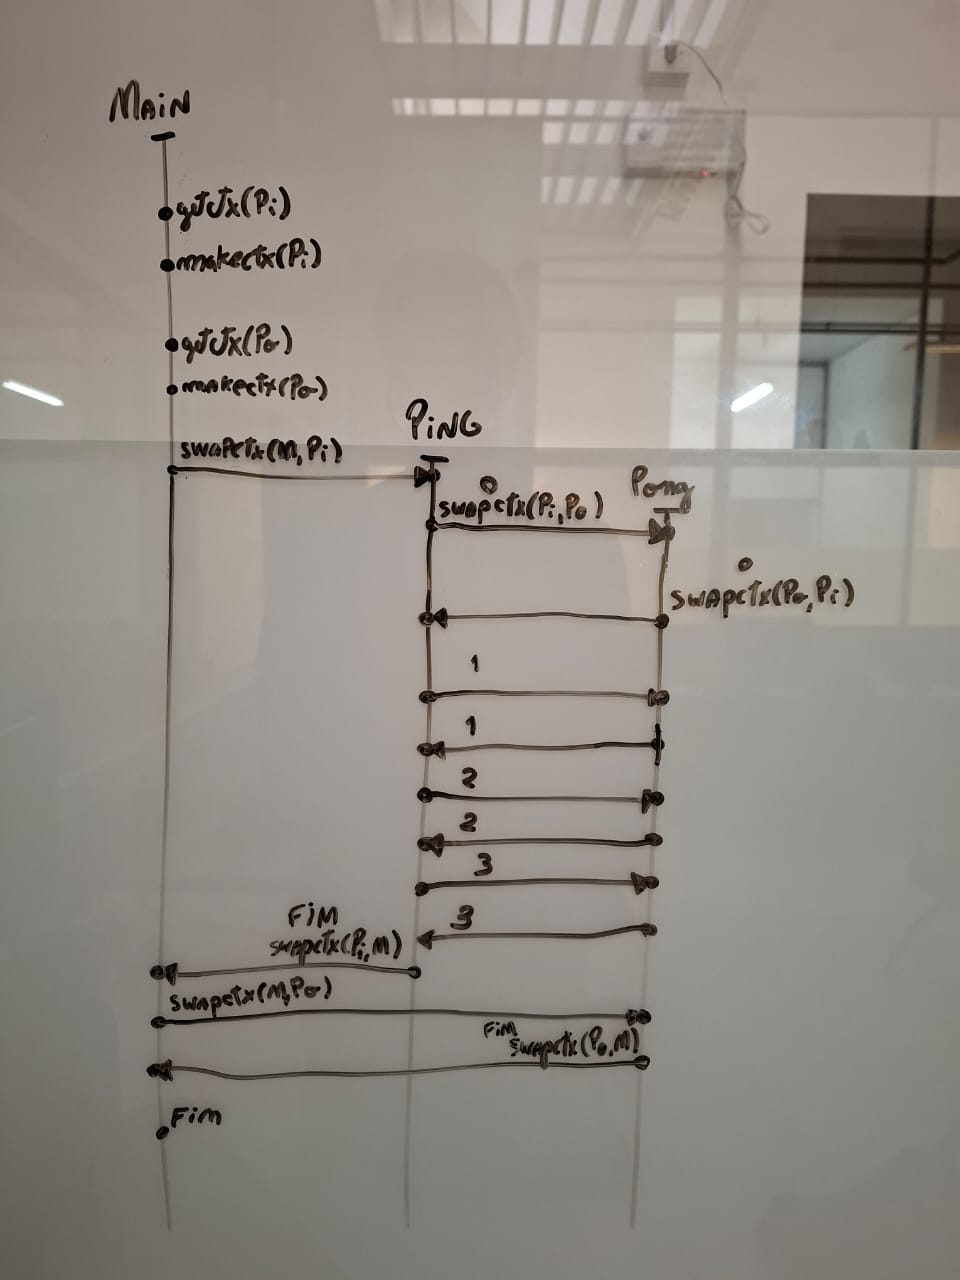 MAIN
getctx(Pi)
makectx(Pi)
getctx(Po)
makectx(Po)
PING
swapctx(M,Pi)
Pong
0
swapctx(Pi,Po)
0
swapctx(Po,Pi)
1
1
2
2
3
3
FiM
swapctx(Pi,M)
swapctx(M,Po)
FiM
swapctx(Po,M)
FiM